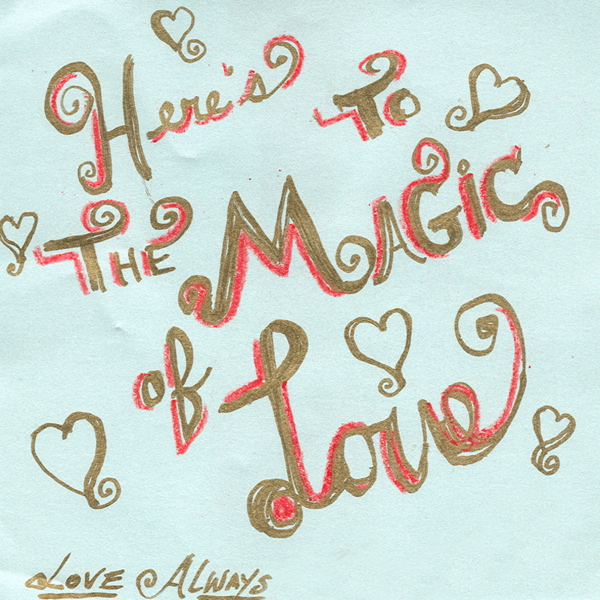 Here's To
The Magic
of Love
Love Always